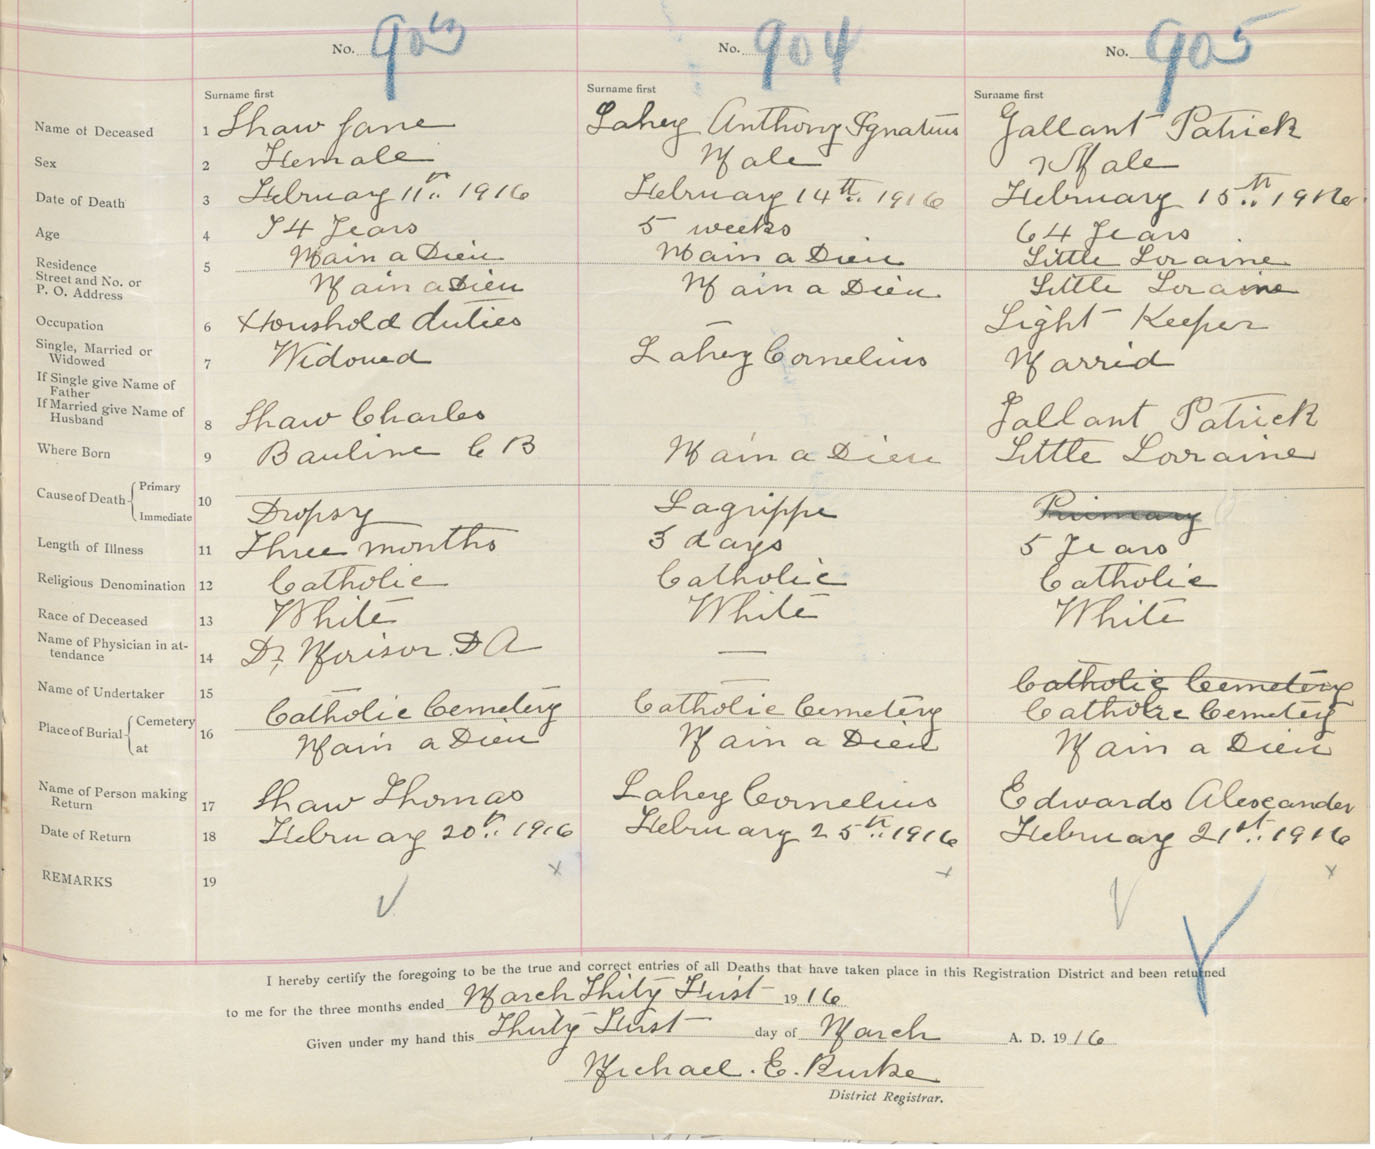 No. 903 No. 904 No. 905
Surname first Surname first Surname first
Name of Deceased 1 Shaw Jane Lahey Anthony Ignatius Gallant Patrick
Sex 2 Female Male Male
Date of Death 3 February 11th 1916 February 14th 1916 February 15th 1916
Age 4 74 Years 5 weeks 64 Years
Residence 5 Main a Dieu Main a Dieu Little Loraine
Street and No. or
P. O. Address Main a Dieu Main a Dieu Little Loraine
Occupation 6 Houshold duties Light Keeper
Single, Married or
Widowed 7 Widoued Lahey Cornelius Marrid
If Single give Name of
Father
If Married give Name of
Husband 8 Shaw Charles Gallant Patrick
Where Born 9 Bauline C B Main a Dieu Little Lorraine
Cause of Death Primary 10
Immediate Dropsy Lagrippe Primary
Length of Illness 11 Three months 3 days 5 Years
Religious Denomination 12 Catholic Catholic Catholic
Race of Deceased 13 White White White
Name of Physician in at-
tendance 14 Dr, Morison D A —
Name of Undertaker 15 — — Catholic Cemetery
Place of Burial Cemetery 16 Catholic Cemetery Catholic Cemetery Catholic Cemetery
at Main a Dieu Main a Dieu Main a Dieu
Name of Person making
Return 17 Shaw Thomas Lahey Cornelius Edwards Alexander
Date of Return 18 February 20th 1916 February 25th 1916 February 21st 1916
x x x
REMARKS 19
I hereby certify the foregoing to be the true and correct entries of all Deaths that have taken place in this Registration District and been returned
to me for the three months ended March Thity First 1916
Given under my hand this Thirty First day of March A. D. 1916
Michael. E. Burke
District Registrar.